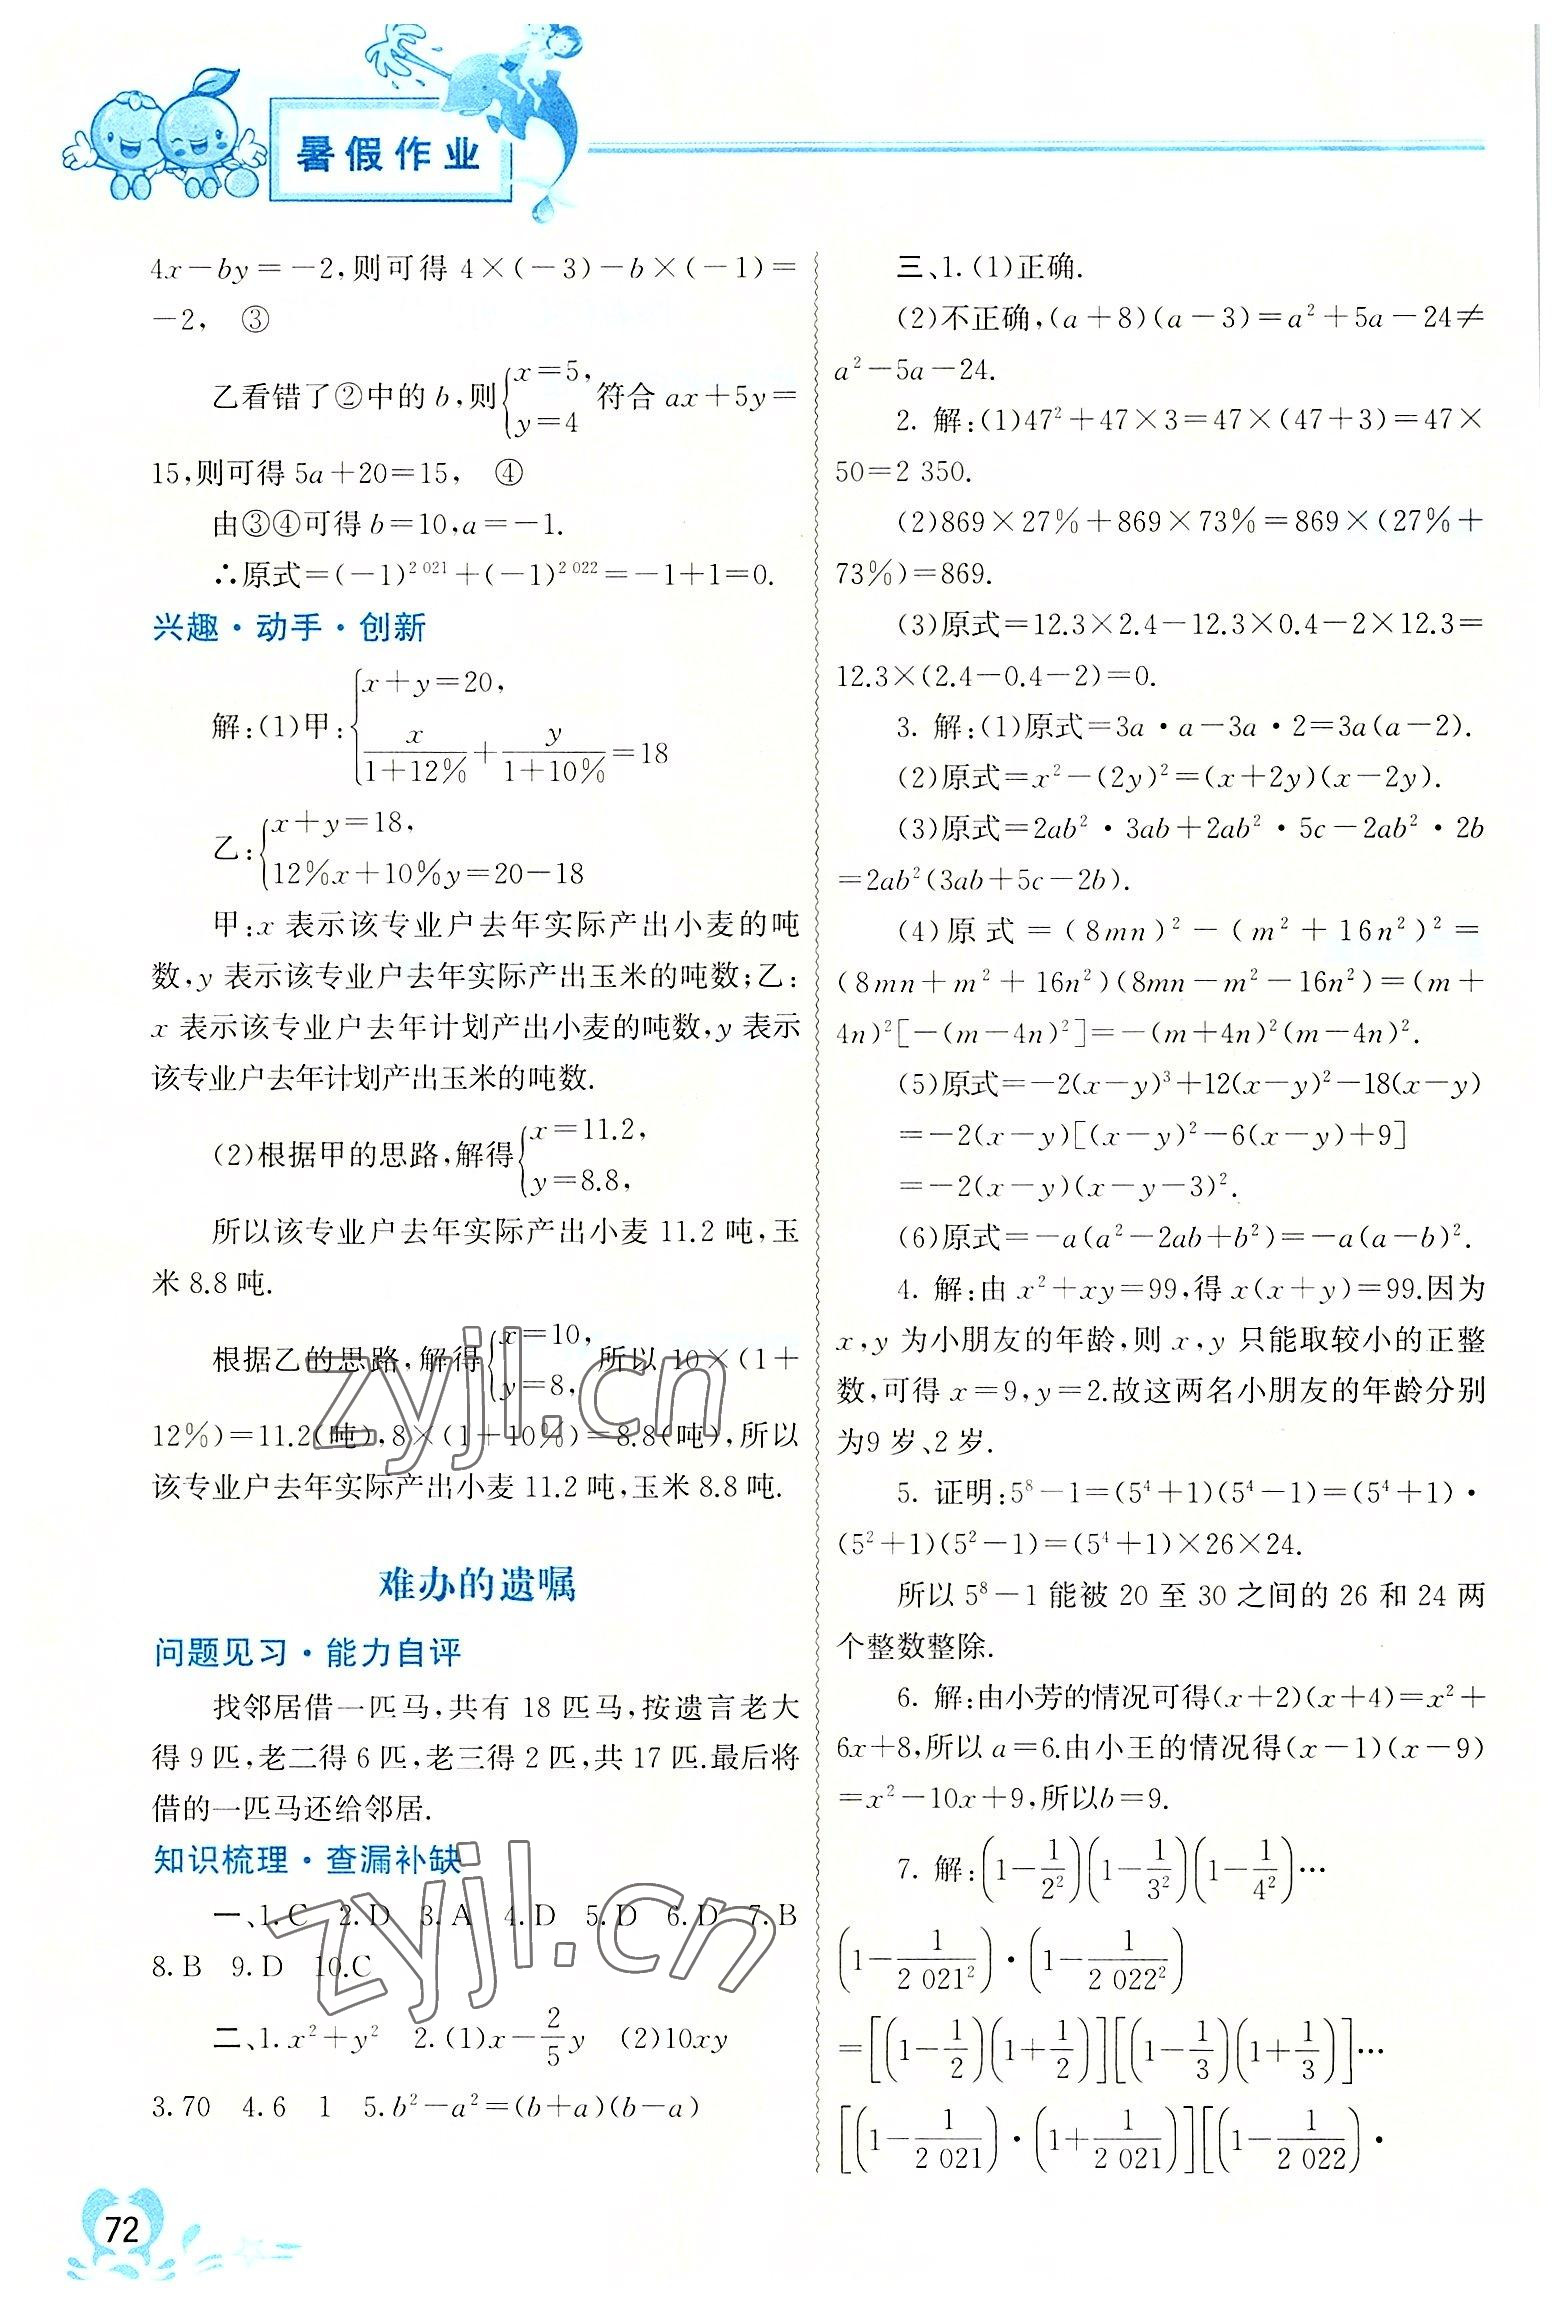 暑假作业
4x-by=-2,则可得 4×(-3)-b×(-1)=
-2, ③
乙看错了②中的 b,则{x=5, y=4 符合 ax+5y=
15,则可得 5a+20=15, ④
由③④可得 b=10,a=-1.
∴原式=(-1)^{2 021}+(-1)^{2 022}=-1+1=0.
兴趣·动手·创新
解:(1)甲:{x+y=20, x/(1+12%)+y/(1+10%)=18
乙:{x+y=18, 12%x+10%y=20-18
甲:x 表示该专业户去年实际产出小麦的吨
数,y 表示该专业户去年实际产出玉米的吨数;乙:
x 表示该专业户去年计划产出小麦的吨数,y 表示
该专业户去年计划产出玉米的吨数.
(2)根据甲的思路,解得{x=11.2, y=8.8,
所以该专业户去年实际产出小麦 11.2 吨,玉
米 8.8 吨.
根据乙的思路,解得{x=10, y=8, 所以 10×(1+
12%)=11.2(吨),8×(1+10%)=8.8(吨),所以
该专业户去年实际产出小麦 11.2 吨,玉米 8.8 吨.
难办的遗嘱
问题见习·能力自评
找邻居借一匹马,共有 18 匹马,按遗言老大
得 9 匹,老二得 6 匹,老三得 2 匹,共 17 匹.最后将
借的一匹马还给邻居.
知识梳理·查漏补缺
一、1.C 2.D 3.A 4.D 5.D 6.D 7.B
8.B 9.D 10.C
二、1.x²+y² 2.(1)x-2/5y (2)10xy
3.70 4.6 1 5.b²-a²=(b+a)(b-a)
三、1.(1)正确.
(2)不正确,(a+8)(a-3)=a²+5a-24≠
a²-5a-24.
2. 解:(1)47²+47×3=47×(47+3)=47×
50=2 350.
(2)869×27%+869×73%=869×(27%+
73%)=869.
(3)原式=12.3×2.4-12.3×0.4-2×12.3=
12.3×(2.4-0.4-2)=0.
3. 解:(1)原式=3a·a-3a·2=3a(a-2).
(2)原式=x²-(2y)²=(x+2y)(x-2y).
(3)原式=2ab²·3ab+2ab²·5c-2ab²·2b
=2ab²(3ab+5c-2b).
(4)原式=(8mn)²-(m²+16n²)²=
(8mn+m²+16n²)(8mn-m²-16n²)=(m+
4n)²[-(m-4n)²]=-(m+4n)²(m-4n)².
(5)原式=-2(x-y)³+12(x-y)²-18(x-y)
=-2(x-y)[(x-y)²-6(x-y)+9]
=-2(x-y)(x-y-3)².
(6)原式=-a(a²-2ab+b²)=-a(a-b)².
4. 解:由 x²+xy=99,得 x(x+y)=99.因为
x,y 为小朋友的年龄,则 x,y 只能取较小的正整
数,可得 x=9,y=2.故这两名小朋友的年龄分别
为9 岁、2 岁.
5. 证明:5⁸-1=(5⁴+1)(5⁴-1)=(5⁴+1)·
(5²+1)(5²-1)=(5⁴+1)×26×24.
所以 5⁸-1 能被 20 至 30 之间的 26 和 24 两
个整数整除.
6. 解:由小芳的情况可得(x+2)(x+4)=x²+
6x+8,所以 a=6.由小王的情况得(x-1)(x-9)
=x²-10x+9,所以b=9.
7. 解:(1-1/2²)(1-1/3²)(1-1/4²)…
(1-1/2 021²)·(1-1/2 022²)
=[(1-1/2)(1+1/2)][(1-1/3)(1+1/3)]…
[(1-1/2 021)·(1+1/2 021)][(1-1/2 022)·
72
zyjl.cn
zyjl.cn